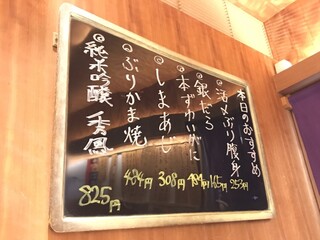 本日のおすすめ
◎活〆ぶり腹身 253円
◎銀だら 165円
◎本ずわいがに 484円
◎しまあじ 308円
◎ぶりかま焼 484円
◎純米吟醸 秀鳳 825円